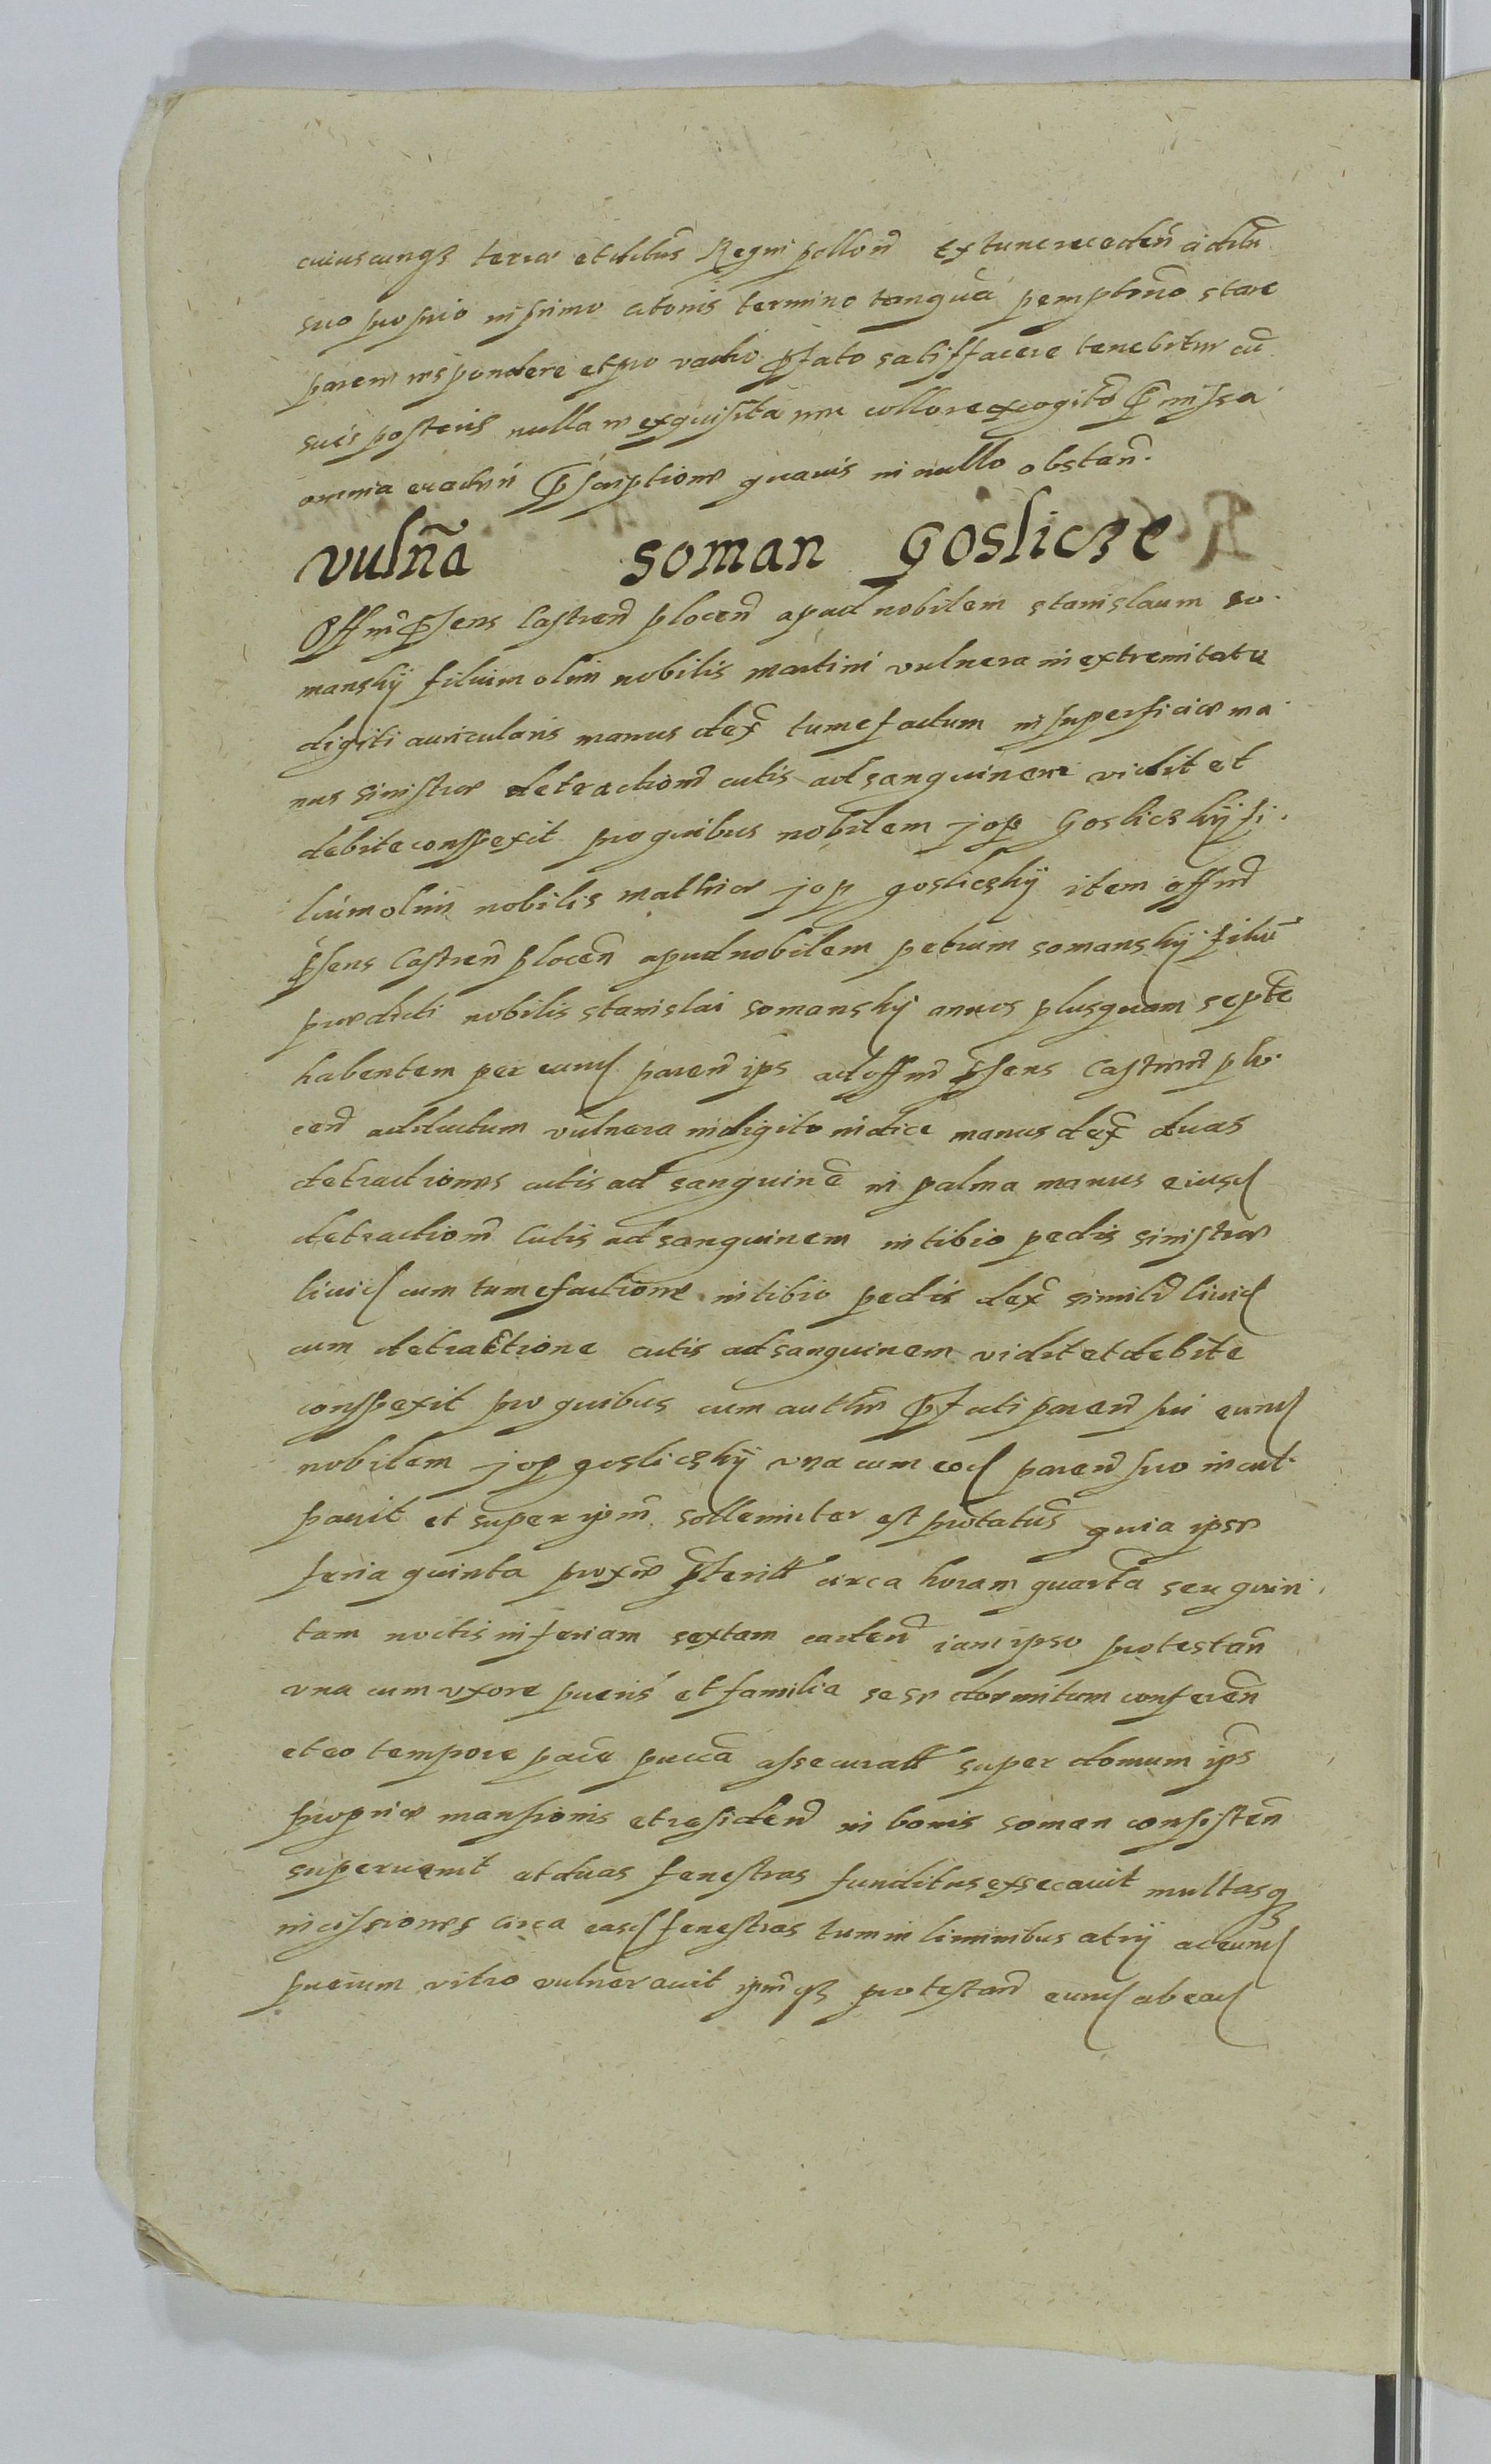 cuiuscunqȝ terræ et ditiōs Regni pollon̄ extunc recedēn a ditiōn
suo proprio in primo c̄itonis termino tanquā pemptorio stare
parere respondere et pro vadio p̄fato satisffacere tenebitur cū
suis posteris nulla re exquisita nec collore excogito p̄missa
omnia euadēn p̄scriptione quauis in nullo obstan̄.
vulñā soman Goslicze
Offm̄ p̄sens Castren̄ plocen̄ apud nobilem stanislaum so-
manskÿ filium olim nobilis martini vulnera in extremitate
digiti auricularis manus dex̄ tumefactum in superficie ma-
nus sinistræ detractionē cutis ad sanguinem vidit et
debite conspexit pro quibus nobilem jop Goslicskÿ fi-
lium olim nobilis mathiæ jop goslicskÿ item offm̄
p̄sens Castren̄ plocen̄ apud nobilem petrum somanskÿ filiū
prædicti nobilis stanislai somanskÿ annos plusquam septē
habentem per eund paren̄ ips ad offm̄ p̄sens Castren̄ plo-
cen̄ adductum vulnera in digito indice manus dex̄ duas
detractiones cutis ad sanguinē in palma manus eiusd
detractionē Cutis ad sanguinem in tibio pedis sinistræ
liuid cum tumefactione in tibio pedis dex̄ simile liuid
cum detractione cutis ad sanguinem vidit et debite
conspexit pro quibus cum auth̄re p̄fati paren̄ sui eund
nobilem jop goslicskÿ vna cum eod paren̄ suo incul-
pauit et super ipm̄ sollemniter est protatus quia ipse
feria quinta proxē p̄terita circa horam quartā seu quin-
tam noctis in feriam sextam caden̄ iam ipso protestān
vna cum vxore pueris et familia sese dormitum conferēn
et eo tempore pacē puccā assecurata super domum ips
propriæ mansionis et residen̄ in bonis soman consistēn
superuenit et duas fenestras funditus exsecauit multasqȝ
incissiones circa easd fenestras tum in liminibus atrÿ ac eund
puerum vitro vulnerauit ipm̄qȝ protestan̄ eund ab ead